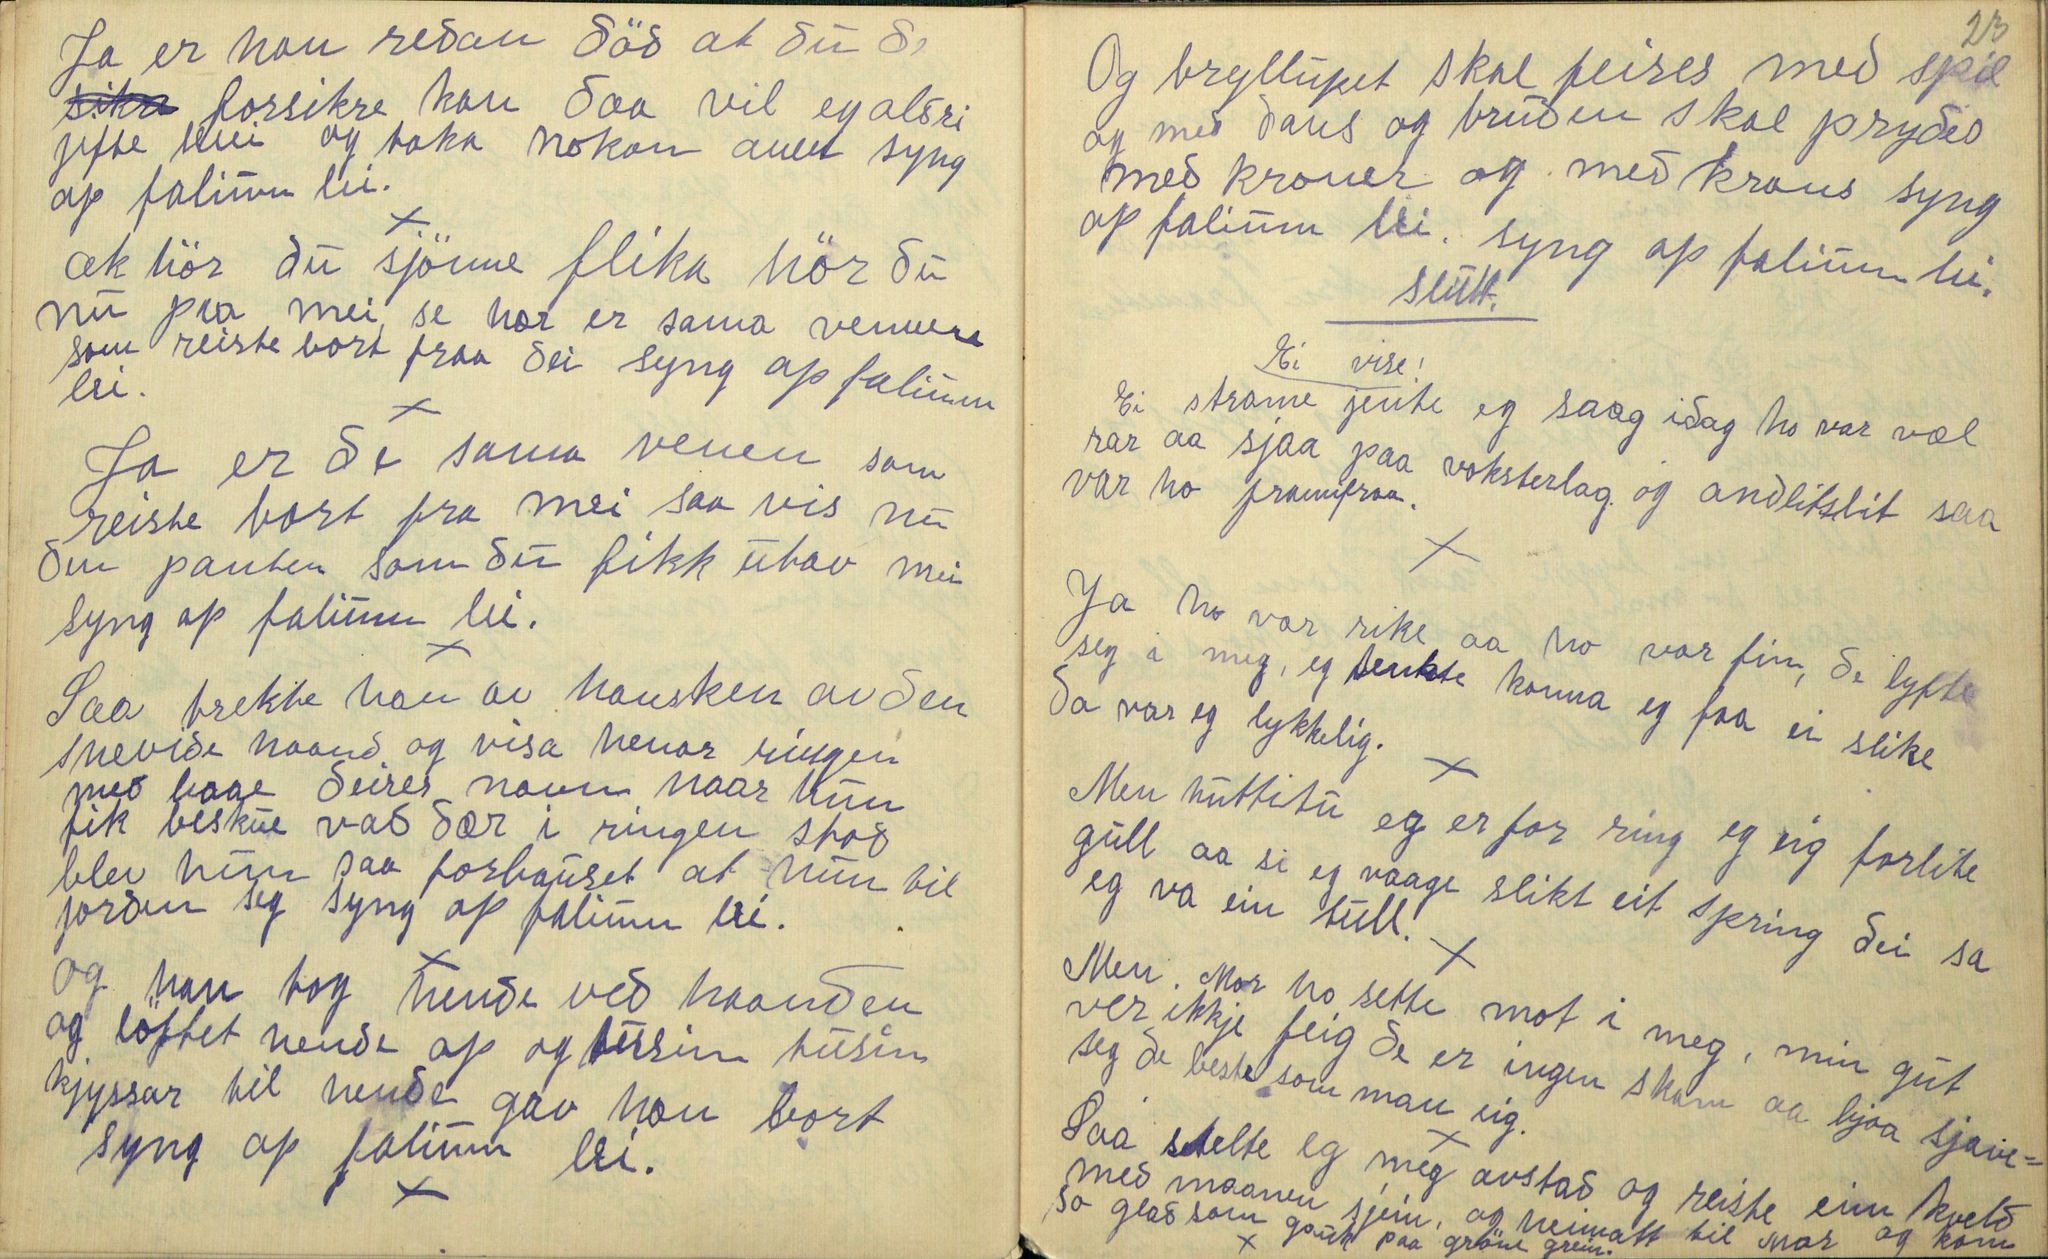 Ja er han redan död at du de
forsikre kan daa vil eg aldri
jifte mei og taka nokon anen syng
op falimm lei.
×
ak hör du sjönne flika hör du
nu paa mei, se her er sama vennen
som reiste bort fraa dei syng op falimm
lei.
×
Ja er de sama venen som
reiste bort fra mei saa vis nu
den panten som du fikk utav mei
syng op falimm lei.
×
Saa trekte han av hansken av den
snevide haand og visa henar ringen
med baae deires navn naar hun
fik beskue vad dær i ringen stod
blev hun saa forbauset at hun til
jorden seg syng op falimm lei.
×
og han tog hende ved haanden
og löftet hende op og tusin tusin
kjyssar til hende gav han bort
syng op falimm lei.
×
23
Og bryllupet skal feires med spil
og med dans og bruden skal prydes
med kroner og med krans syng
op falimm lei. syng op falimm lei.
slutt.
Ei vise!
Ei strame jente eg saag idag ho var væl
rar aa sjaa paa voksterlag og andlitslit saa
var ho framifraa.
×
Ja ho var rike aa ho var fin, de lyfte
seg i meg, eg tenkte kunna eg faa ei slike
da var eg lykkelig.
×
Men huttitu eg er for ring eg eig forlite
gull aa si eg vaage slikt eit spring dei sa
eg va ein tull.
×
Men. Mor ho sette mot i meg, min gut
ver ikkje feig de er ingen skam aa bjoa sjave=
seg de beste som man eig.
×
Saa stelte eg meg avstad og reiste ein kveld
med maanen sjein, og heimatt til Mor og kom
so glad som gauk paa gröne grein.
×